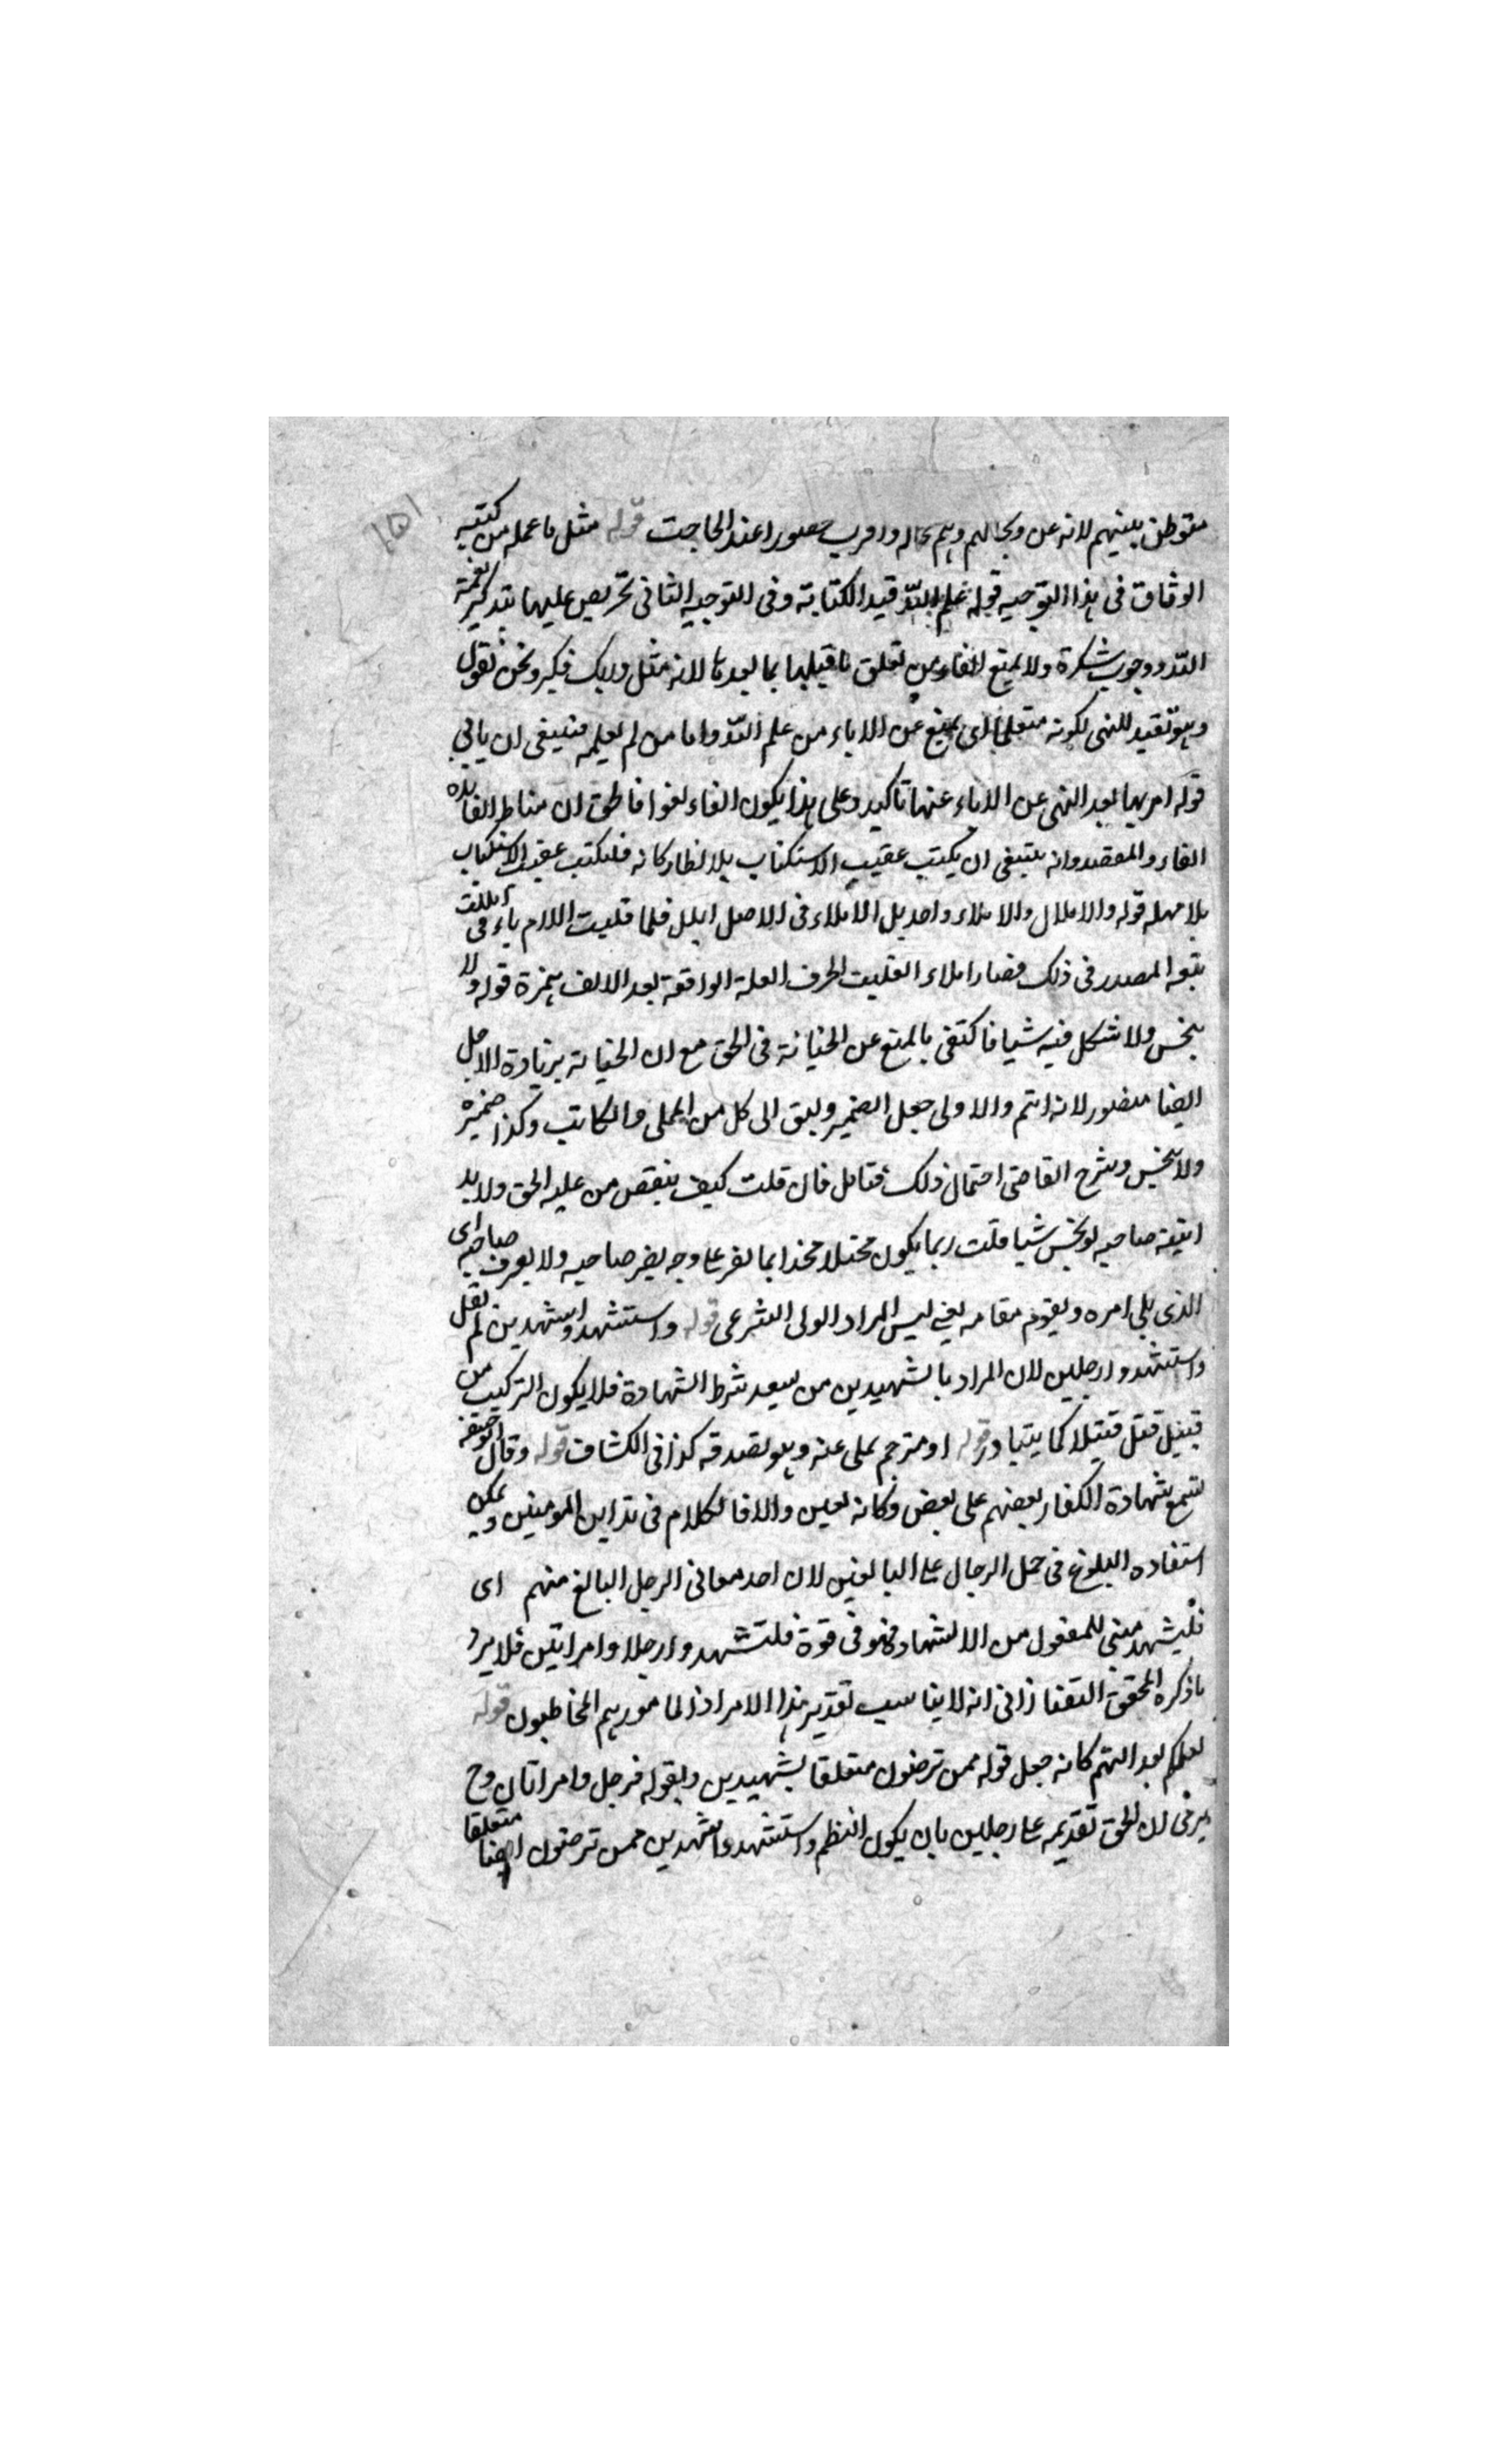 ١٥١
متوطن بينهم لانه عن وبحالهم وهم بحاله واقرب حضورا عند الحاجت قوله مثل ما عمله من كتبه
الوثاق فى هذا التوجيه قوله علم الله قيد الكتابة وفى التوجيه الثانى تحريص عليها بتذكير نعمة
الله ووجوب شكره ولا يمنع الفاء عن تعلق ما قبلها بما بعدها لانه مثل وربك فكبر ونحن نقول
وهو تقييد للنهى لكونه متعلق اى يمنع عن الاباء من علم الله واما من لم يعلمه فينبغى ان يابى
قوله امر بها بعد النهى عن الاباء عنها تاكيد وعلى هذا يكون الفاء لغوا فالحق ان مناط الفايده
الفاء والمقصد وانه ينبغى ان يكتب عقيب الاستكتاب بلا انظار كانه فليكتب عقيب الاستكتاب
بلا مهله قوله والاملال والاملاء واحد بل الاملاء فى الاصل املل فلما قلبت اللام ياء فى امللت
تبعه المصدر فى ذلك فصار املاء انقلبت الحرف العلة الواقعة بعد الالف همزة قوله ولا
يبخس ولا شكل فيه شيا فاكتفى بالمنع عن الخيانة فى الحق مع ان الخيانه بزيادة الاجل
ايضا متصور لانه اتم والاولى جعل الضمير وليق الى كل من المملى والكاتب وكذا ضمير
ولا يبخس وشرح القاضى احتمال ذلك فتامل فان قلت كيف ينقص من عليه الحق ولا بد
صاحبه لو بخس شيا قلت ربما يكون محتلا مخذا بما يقر على وجه يضر صاحبه ولا يعرف صاحبه اى
الذى يلى امره ويقوم مقامه يعنى ليس المراد الولى الشرعى قوله واستشهدوا شهيدين لم يقل
واستشهدوا رجلين لان المراد بالشهيدين من يعد شرط الشهادة فلا يكون التركيب من
قبيل قتل قتيلا كما يتبادر قوله او مترجم يملى عنه وهو يصدقه كذا فى الكشاف قوله وقال ابو حنيفه
تسمع شهادة الكفار بعضهم على بعض وكانه والا فالكلام فى تداين المومنين ويمكن
استفاده البلوغ فى حمل الرجال على البالغين لان احد معانى الرجل البالغ منهم اى
فليشهد مبنى للمفعول من الاشهاد فهو فى قوة فلتشهدوا رجلا وامراتين فلا يرد
ما ذكره المحقق التفتازانى انه لا يناسب تقدير هذا الامر اذ المامور هم المخاطبون قوله
لعلمكم بعدالتهم كانه جعل قوله ممن ترضون متعلقا بشهيدين وبقوله فرجل وامراتان وح
يرد فى ان الحق تقديمه على رجلين بان يكون النظم واستشهدوا شهيدين ممن ترضون ايضا متعلقا